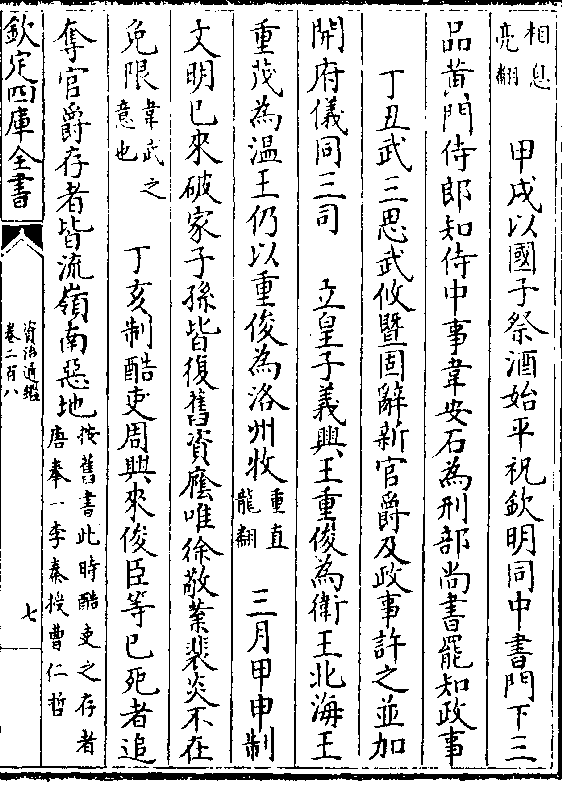 相息亮翻　甲戌以國子祭酒始平祝欽明同中書門下三
品黄門侍郎知侍中事韋安石為刑部尚書罷知政事
丁丑武三思武攸暨固辭新官爵及政事許之並加
開府儀同三司　立皇子義興王重俊為衛王北海王
重茂為温王仍以重俊為洛州牧重直龍翻　三月甲申制
文明已來破家子孫皆復舊資䕃唯徐敬業裴炎不在
免限韋武之意也　丁亥制酷吏周興來俊臣等已死者追
奪官爵存者皆流嶺南惡地按舊書此時酷吏之存者唐奉一李秦授曹仁哲
欽定四庫全書
資治通鑑
卷二百八
七